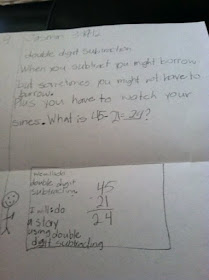 double digit subtraction
When you subtract you might borrow
but sometimes you might not have to
borrow.
Plus you have to watch your
sines. What is 45-21=24?
double digit
subtracting
I will do
a story
using double
digit subtracting
45
-21
24